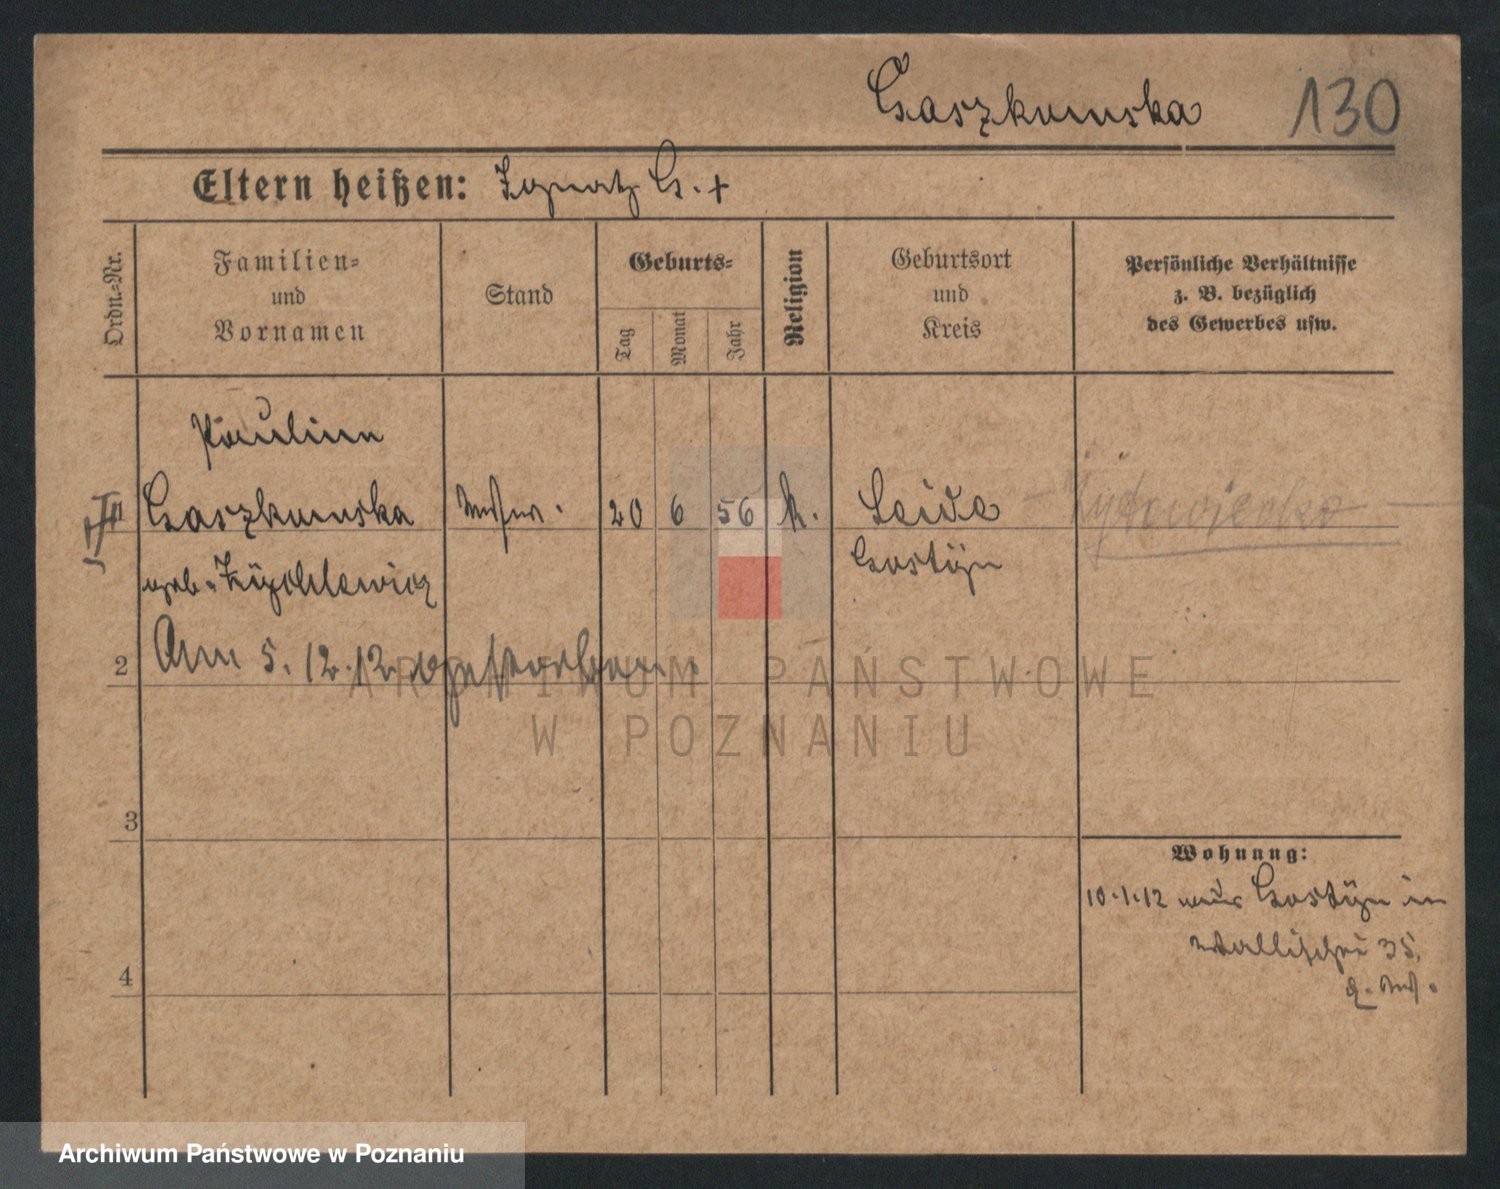 Gaszkowska 130
Eltern heißen: Ignatz G. +
Ordn.-Nr.
Familien- und Vornamen
Stand
Geburts-
Tag
Monat
Jahr
Religion
Geburtsort und Kreis
Persönliche Verhältnisse z. B. bezüglich des Gewerbes usw.
Paulina
Gaszkowska 20 6 56 k.
geb.
Gostyn
2 Am 5. 12. 12 gestorben.
3
4
Wohnung:
10.1.12 aus Gostyn in
Wallischei 35.
ARCHIWUM PAŃSTWOWE
W POZNANIU
Archiwum Państwowe w Poznaniu